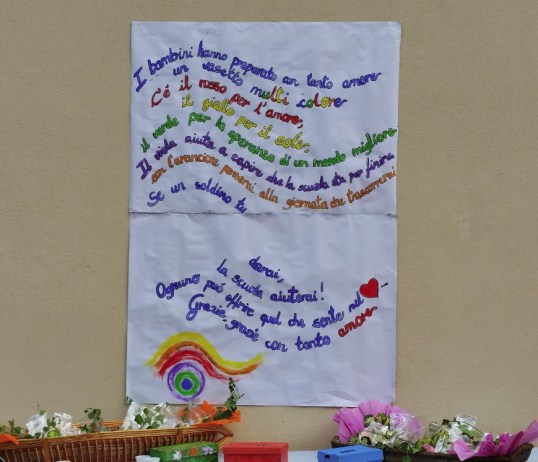 I bambini hanno preparato con tanto amore
un vasetto multi colore
C'é il rosso per l'amore,
il giallo per il sole,
il verde per la speranza di un mondo migliore
Il viola aiuta a capire che la scuola sta per finire
con l'arancione penserai alla giornata che trascorrerai
Se un soldino tu
darai,
la scuola aiuterai!
Ognuno può offrire quel che sente nel
Grazie, grazie con tanto amore